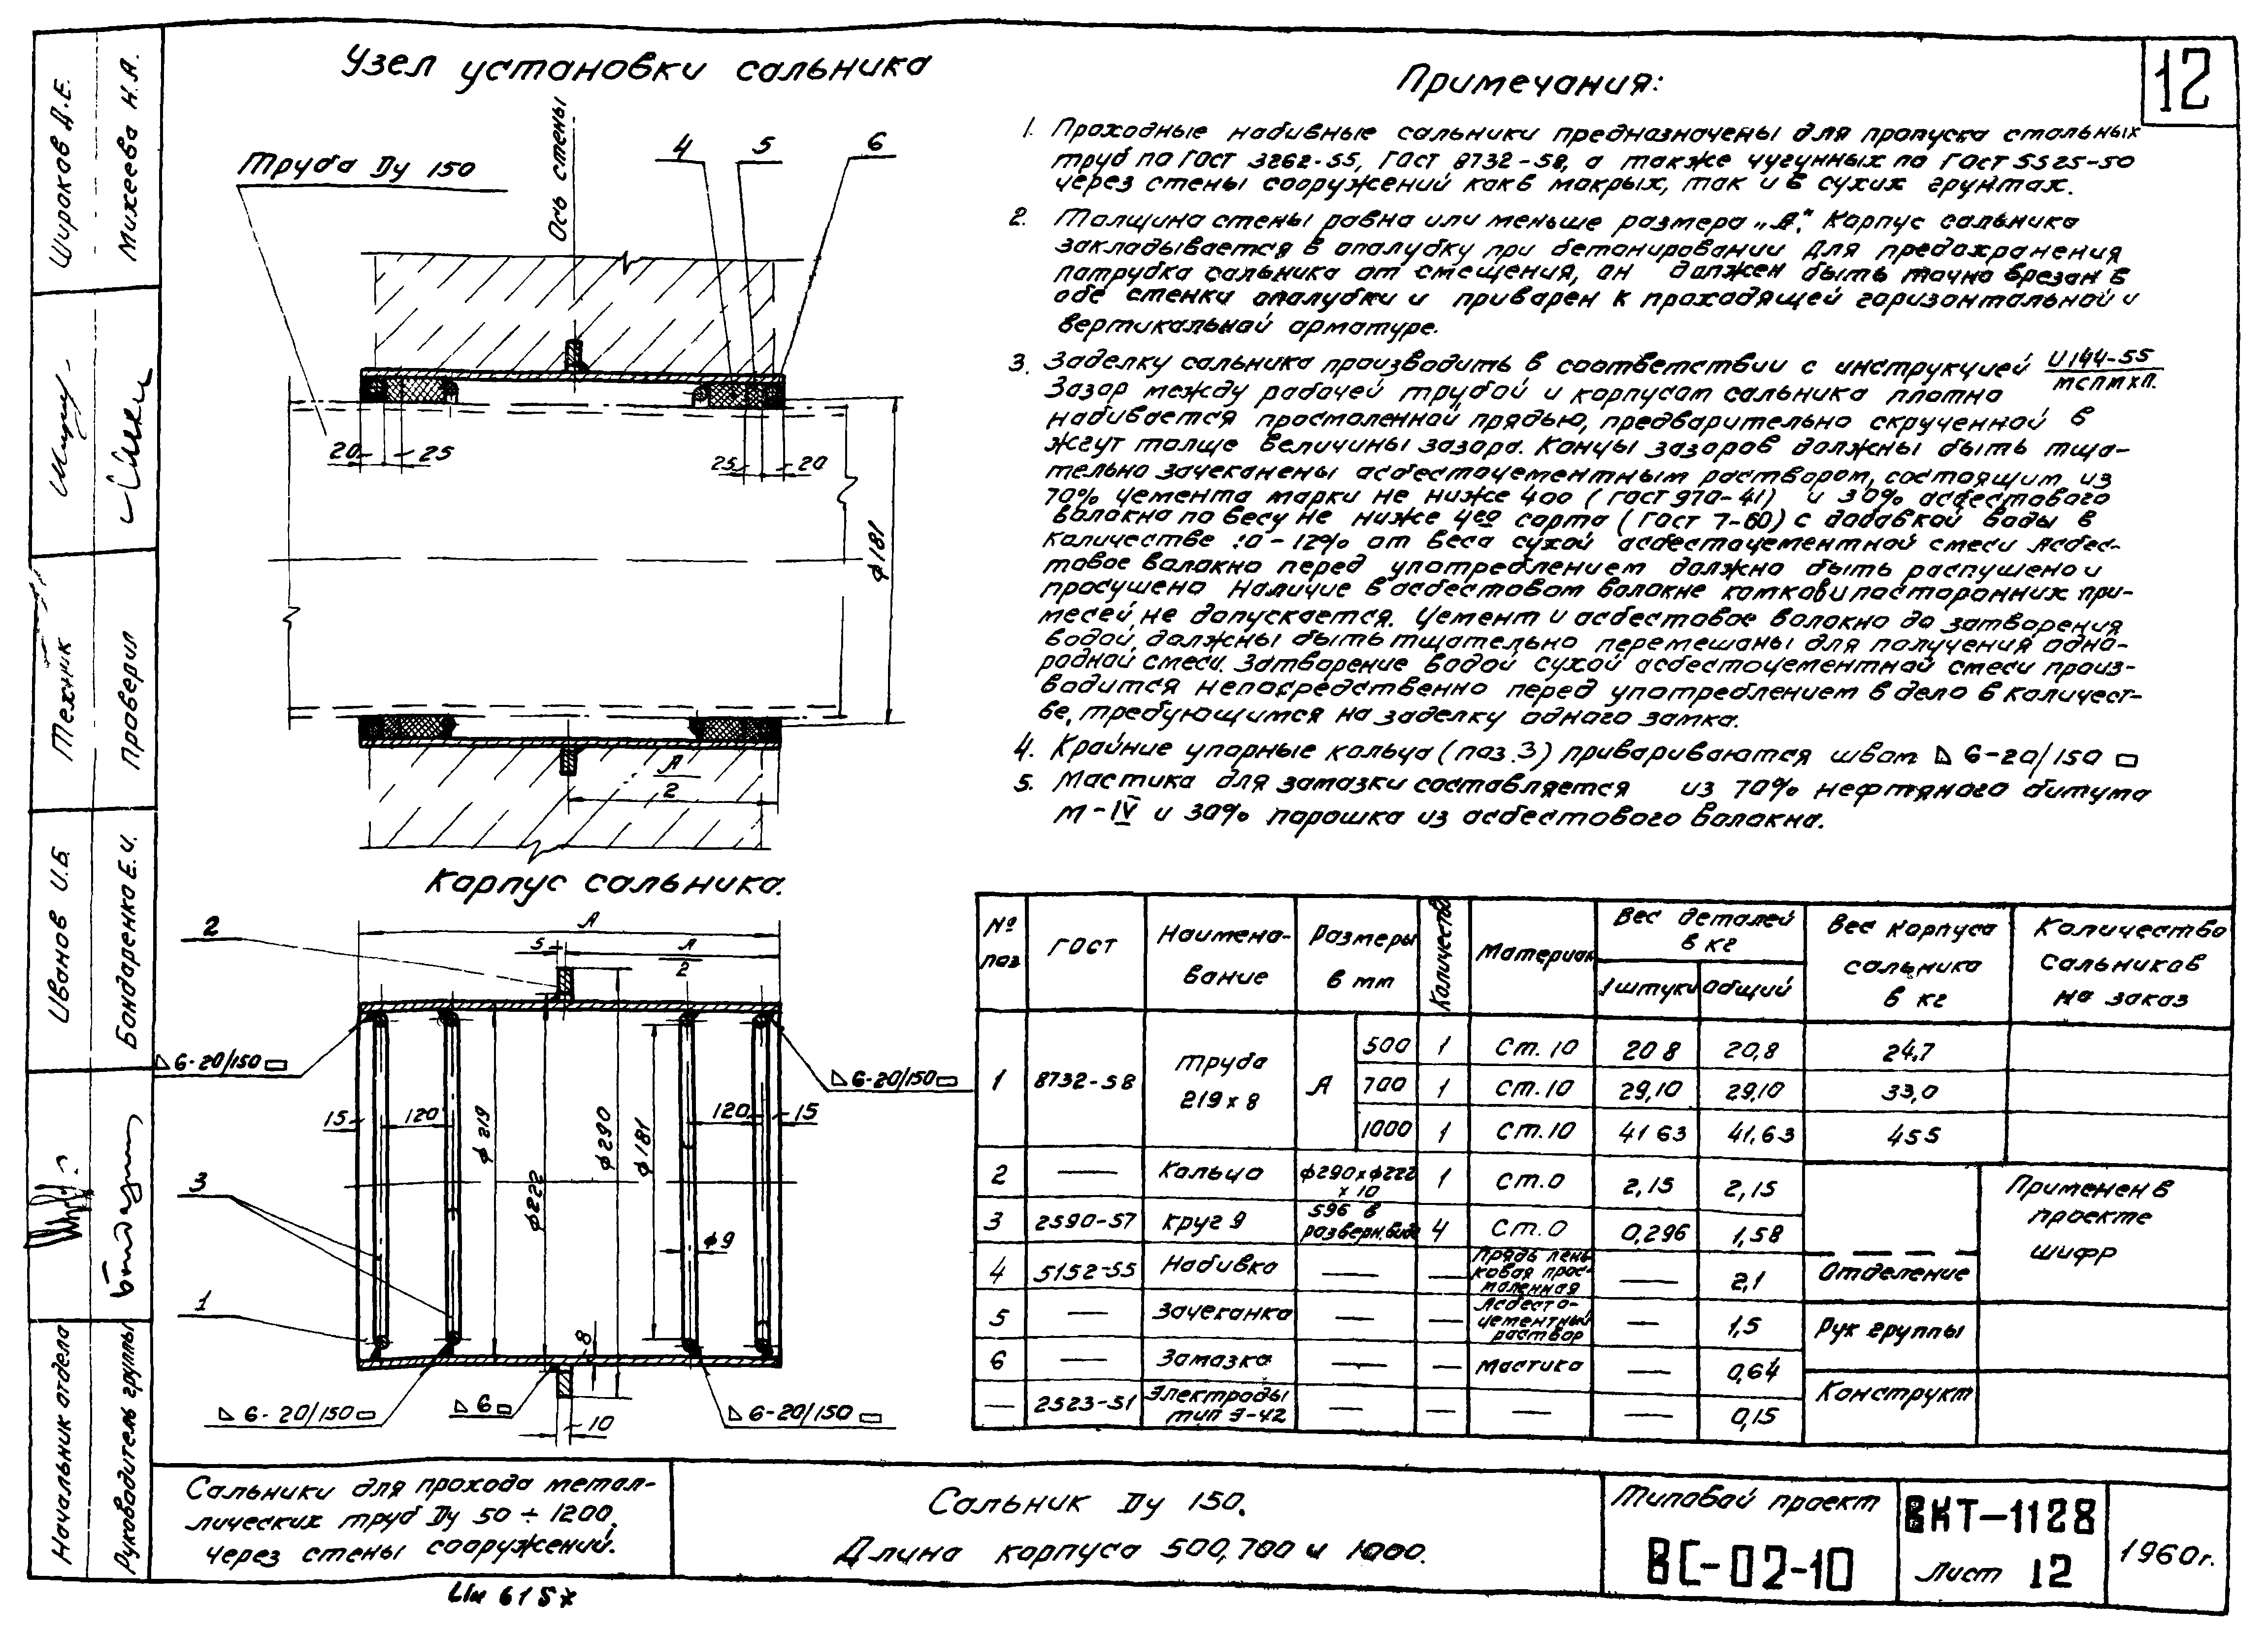 12
Узел установки сальника
Труба Dу 150
Ось стены
4
5
6
20
25
25
20
ф181
А
2
Корпус сальника.
А
2
5
А
2
△ 6-20/150 ▭
△ 6-20/150 ▭
15
120
ф219
ф222
ф290
ф181
120
15
3
ф9
1
8
△ 6-20/150 ▭
△ 6 ▭
10
△ 6-20/150 ▭
Примечания:
1. Проходные набивные сальники предназначены для пропуска стальных
труб по ГОСТ 3262-55, ГОСТ 8732-58, а также чугунных по ГОСТ 5525-50
через стены сооружений как в мокрых, так и в сухих грунтах.
2. Толщина стены равна или меньше размера „А". Корпус сальника
закладывается в опалубку при бетонировании Для предохранения
патрубка сальника от смещения, он должен быть точно врезан в
обе стенки опалубки и приварен к проходящей горизонтальной и
вертикальной арматуре.
3. Заделку сальника производить в соответствии с инструкцией И144-55
МСПМХП.
Зазор между рабочей трубой и корпусом сальника плотно
набивается просмоленной прядью, предварительно скрученной в
жгут толще величины зазора. Концы зазоров должны быть тща-
тельно зачеканены асбестоцементным раствором, состоящим из
70% цемента марки не ниже 400 (ГОСТ 970-41) и 30% асбестового
волокна по весу не ниже 4го сорта (ГОСТ 7-60) с добавкой воды в
количестве 10-12% от веса сухой асбестоцементной смеси Асбес-
товое волокно перед употреблением должно быть распушено и
просушено Наличие в асбестовом волокне комков и посторонних при-
месей, не допускается. Цемент и асбестовое волокно до затворения
водой, должны быть тщательно перемешаны для получения одно-
родной смеси. Затворение водой сухой асбестоцементной смеси произ-
водится непосредственно перед употреблением в дело в количест-
ве, требующимся на заделку одного замка.
4. Крайние упорные кольца (поз. 3) привариваются швом △ 6-20/150 ▭
5. Мастика для замазки составляется из 70% нефтяного битума
М-IV и 30% порошка из асбестового волокна.
№ поз | ГОСТ | Наимено-вание | Размеры в мм | Количество | Материал | Вес деталей в кг | Вес корпуса сальника в кг | Количество сальников на заказ
1 штуки | общий
1 | 8732-58 | Труба 219 x 8 | А | 500 | 1 | Ст. 10 | 20 8 | 20,8 | 24,7
700 | 1 | Ст. 10 | 29,10 | 29,10 | 33,0
1000 | 1 | Ст. 10 | 41 63 | 41,63 | 45 5
2 | — | Кольцо | ф290xф222 x 10 | 1 | Ст. 0 | 2,15 | 2,15
3 | 2590-57 | Круг 9 | 596 в разверн. виде | 4 | Ст. 0 | 0,296 | 1,58
4 | 5152-55 | Набивка | — | — | Прядь пень-ковая прос-моленная | — | 2,1
5 | — | Зачеканка | — | — | Асбесто-цементный раствор | — | 1,5
6 | — | Замазка | — | — | мастика | — | 0,64
— | 2523-51 | Электроды тип Э-42 | — | — | — | — | 0,15
Применен в
проекте
шифр
Отделение
Рук группы
Конструкт
Сальники для прохода метал-
лических труб Dу 50 ÷ 1200,
через стены сооружений.
Сальник Dу 150.
Длина корпуса 500, 700 и 1000.
Типовой проект
ВС-02-10
ВКТ-1128
Лист 12
1960г.
Начальник отдела
Иванов И.Б.
Техник
Широков Д.Е.
Руководитель группы
Бондаренко Е.И.
Проверил
Михеева Н.А.